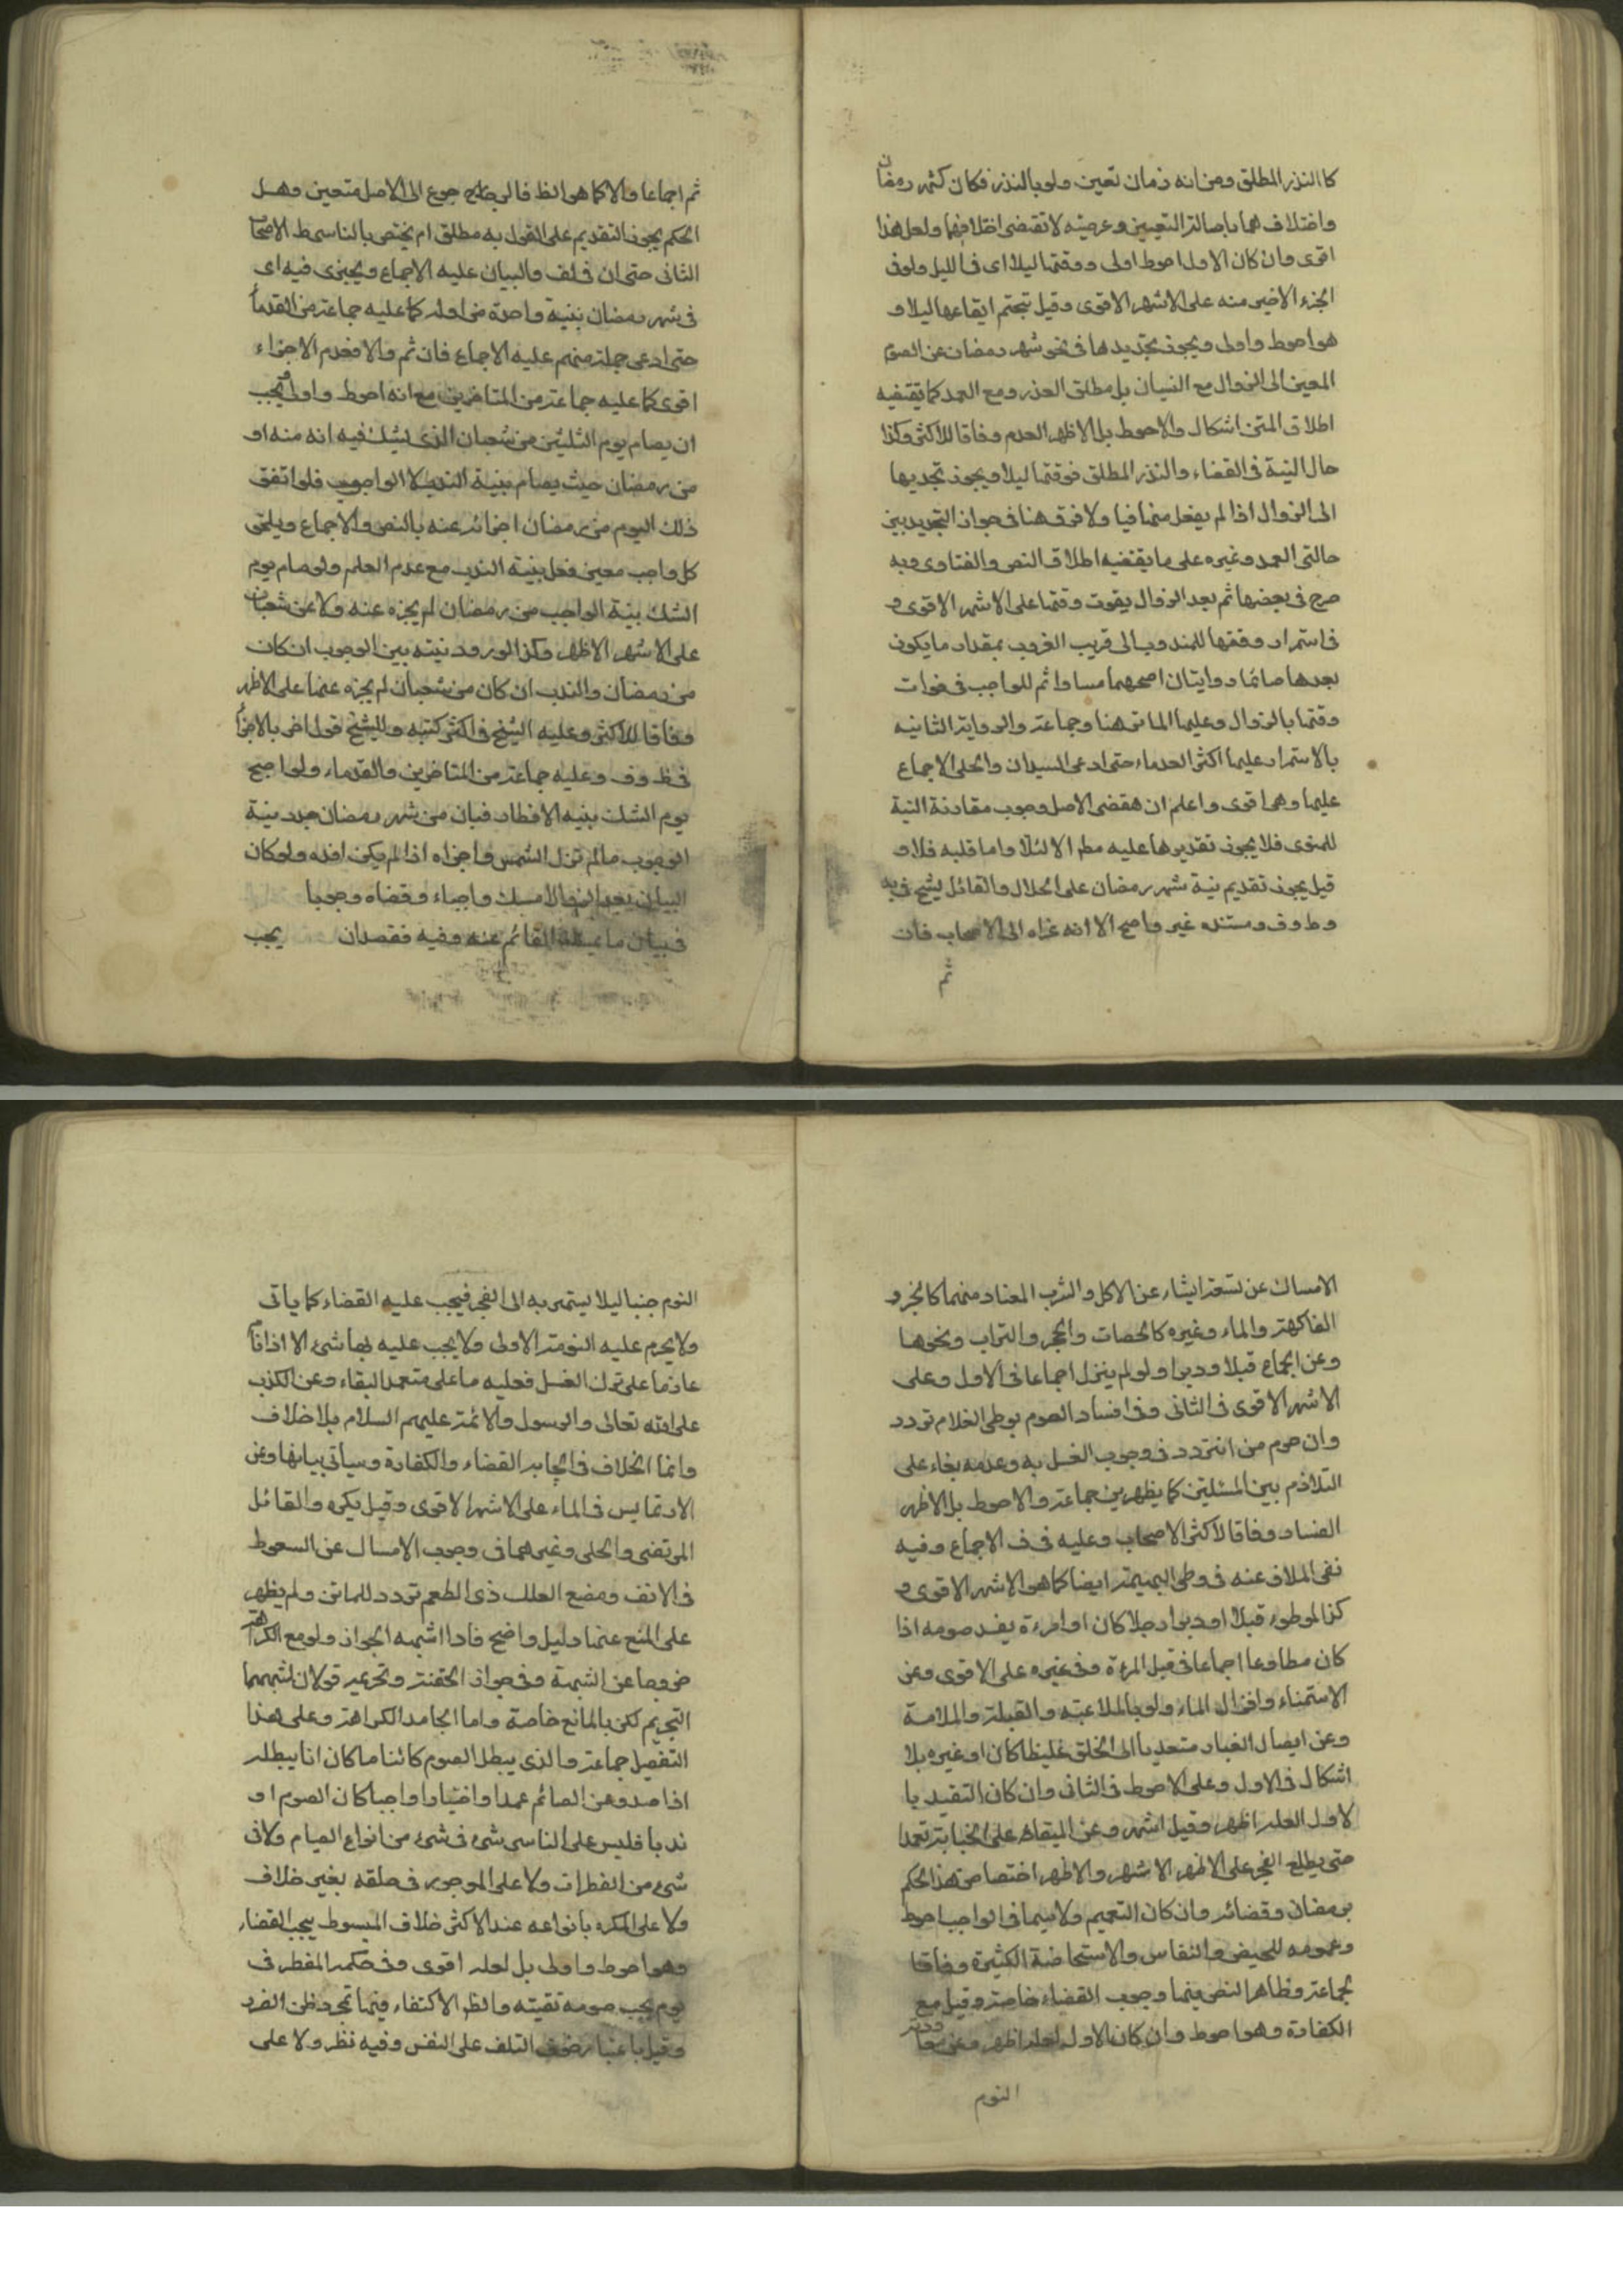 كالنذر المطلق ومن انه زمان تعين ولو بالنذر فكان كشهر رمضان
واختلافهما باصالة التعيين وعرضيته لا تقتضى اختلافهما ولعل هذا
اقوى وان كان الاول احوط اولى ووقتها ليلا اى فى الليل ولو فى
الجزء الاخير منه على الاشهر الاقوى وقيل تحتم ايقاعها ليلا و
هو احوط واولى ويجوز تجديدها فى نحو شهر رمضان عن الصوم
المعين الى الزوال مع النسيان بل مطلق العذر ومع العمد كما يقتضيه
اطلاق المتن اشكال والاحوط بل الاظهر العدم وفاقا للاكثر وكذا
حال النية فى القضاء والنذر المطلق فوقتها ليلا ويجوز تجديها
الى الزوال اذا لم يفعل منافيا ولا فرق هنا فى جواز التجديد بين
حالتى العمد وغيره على ما يقتضيه اطلاق النص والفتاوى وبه
صرح فى بعضها ثم بعد الزوال يفوت وقتها على الاشهر الاقوى و
فى استمرار وقتها للمندوب الى قريب الغروب بمقدار ما يكون
بعدها صائما روايتان اصحهما مساواته للواجب فى فوات
وقتها بالزوال وعليها الماتن هنا وجماعة والرواية الثانيه
بالاستمرار عليها اكثر القدماء حتى ادعى السيدان والحلى الاجماع
عليها وهى اقوى واعلم ان مقتضى الاصل وجوب مقارنة النية
للمنوى فلا يجوز تقديمها عليه مطم الا لئلا واما قلبه فلا و
قيل يجوز تقديم نية شهر رمضان على الهلال والقائل الشيخ فى يه
وط وف ومستنده غير واضح الا انه عزاه الى الاصحاب فان
ثم
ثم اجماعا والا كما هو الظ فالرجوع الى الاصل متعين وهل
الحكم بجواز التقديم على القول به مطلق ام يختص بالناسى ظ الاصحاب
الثانى حتى ان فى لف والبيان عليه الاجماع ويجزى فيه اى
فى شهر رمضان بنية واحدة من اوله كما عليه جماعة من القدماء
حتى ادعى جملة منهم عليه الاجماع فان ثم والا فعدم الاجزاء
اقوى كما عليه جماعة من المتاخرين مع انه احوط واولى ويجب
ان يصام يوم الثلثين من شعبان الذى يشك فيه انه منه او
من رمضان حيث يصام بنية الندب لا الواجوب فلو اتفق
ذلك اليوم من رمضان اجزائه عنه بالنص والاجماع ويلحق
كل واجب معين فعل بنية الندب مع عدم العلم ولو صام يوم
الشك بنية الواجب من رمضان لم يجزه عنه ولا عن شعبان
على الاشهر الاظهر وكذا لو ردد نيته بين الوجوب ان كان
من رمضان والندب ان كان من شعبان لم يجزه عنهما على الاظهر
وفاقا للاكثر وعليه الشيخ فى اكثر كتبه وللشيخ قول اخر بالاجزاء
فى ط وف وعليه جماعة من المتاخرين والقدماء ولو اصبح
يوم الشك بنيه الافطار فبان من شهر رمضان جدد نية
الوجوب ما لم تزل الشمس واجزاه اذا لم يكن افسده ولو كان
البيان بعد الزوال امسك واجباء وقضاه وجوبا
فى بيان ما يمسك القائم عنه وفيه فقصدان يجب
الامساك عن تسعة اشياء عن الاكل والشرب المعتاد منهما كالخبز و
الفاكهة والماء وغيره كالحصات والحجر والتراب ونحوها
وعن الجماع قبلا ودبرا ولو لم ينزل اجماعا فى الاول وعلى
الاشهر الاقوى فى الثانى وفى افساد الصوم بوطى الغلام تردد
وان حرم من التردد فى وجوب الغسل به وعدمه بناء على
التلازم بين المسئلتين كما يظهر من جماعة والاحوط بل الاظهر
الفساد وفاقا لاكثر الاصحاب وعليه فى ف الاجماع وفيه
نفى الخلاف عنه فى وطى البهيمة ايضا كما هو الاشهر الاقوى و
كذا لموطوء قبلا او دبرا رجلا كان او امرءة يفسد صومه اذا
كان مطاوعا اجماعا فى قبل المرءة وفى غيره على الاقوى وعن
الاستمناء وانزال الماء ولو بالملاعبة والقبلة والملامسة
وعن ايصال الغبار متعديا الى الحلق غليظا كان او غيره بلا
اشكال فى الاول وعلى الاحوط فى الثانى وان كان التقييد با
لاول لعله اظهر وقيل اشهر وعن البقاء على الجنابة تعمدا
حتى يطلع الفجر على الاظهر الاشهر والاظهر اختصاص هذا الحكم
برمضان وقضائه وان كان التعميم ولا سيما فى الواجب احوط
وعمومه للحيض والنفاس والاستحاضة الكثيرة وفاقا
لجماعة وظاهر النص فيها وجوب القضاء خاصة وقيل مع
الكفارة وهو احوط وان كان الاول لعله اظهر وعن معاودة
النوم
النوم جنبا ليلا يستمر به الى الفجر فيجب عليه القضاء كما ياتى
ولا يحرم عليه النومة الاولى ولا يجب عليه بها شئ الا اذا نام
عازما على ترك الغسل فعليه ما على متعمد البقاء وعن الكذب
على الله تعالى والرسول والائمة عليهم السلام بلا خلاف
وانما الخلاف فى ايجابه القضاء والكفارة وسياتى بيانها وعن
الارتمايس فى الماء على الاشهر الاقوى وقيل يكره والقائل
المرتضى والحلى وغيرهما فى وجوب الامساك عن السعوط
فى الانف ومضع العلك ذى الطعم تردد للماتن ولم يظهر
على المنع عنهما دليل واضح فاذا اشبهه الجواز ولو مع الكراهة
خروجا عن الشبهة وفى جواز الحقنة وتحريمه قولان اشبههما
التحريم لكن بالمانع خاصة واما الجامد الكراهة وعلى هذا
التفصيل جماعة والذى يبطل الصوم كائنا ما كان انما يبطله
اذا صدر عن الصائم عمدا واختيارا واجبا كان الصوم او
ندبا فليس على الناسى شئ فى شئ من انواع الصيام ولا فى
شئ من المفطرات ولا على الموجور فى حلقه بغير خلاف
ولا على المكره بانواعه عند الاكثر خلاف المبسوط يجب القضاء
وهو احوط واولى بل لعله اقوى وفى حكمه المفطر فى
يوم يجب صومه تقيته والظ الاكتفاء فيها بمجرد ظن الضرر
وقيل باعتبار خوف التلف على النفس وفيه نظر ولا على